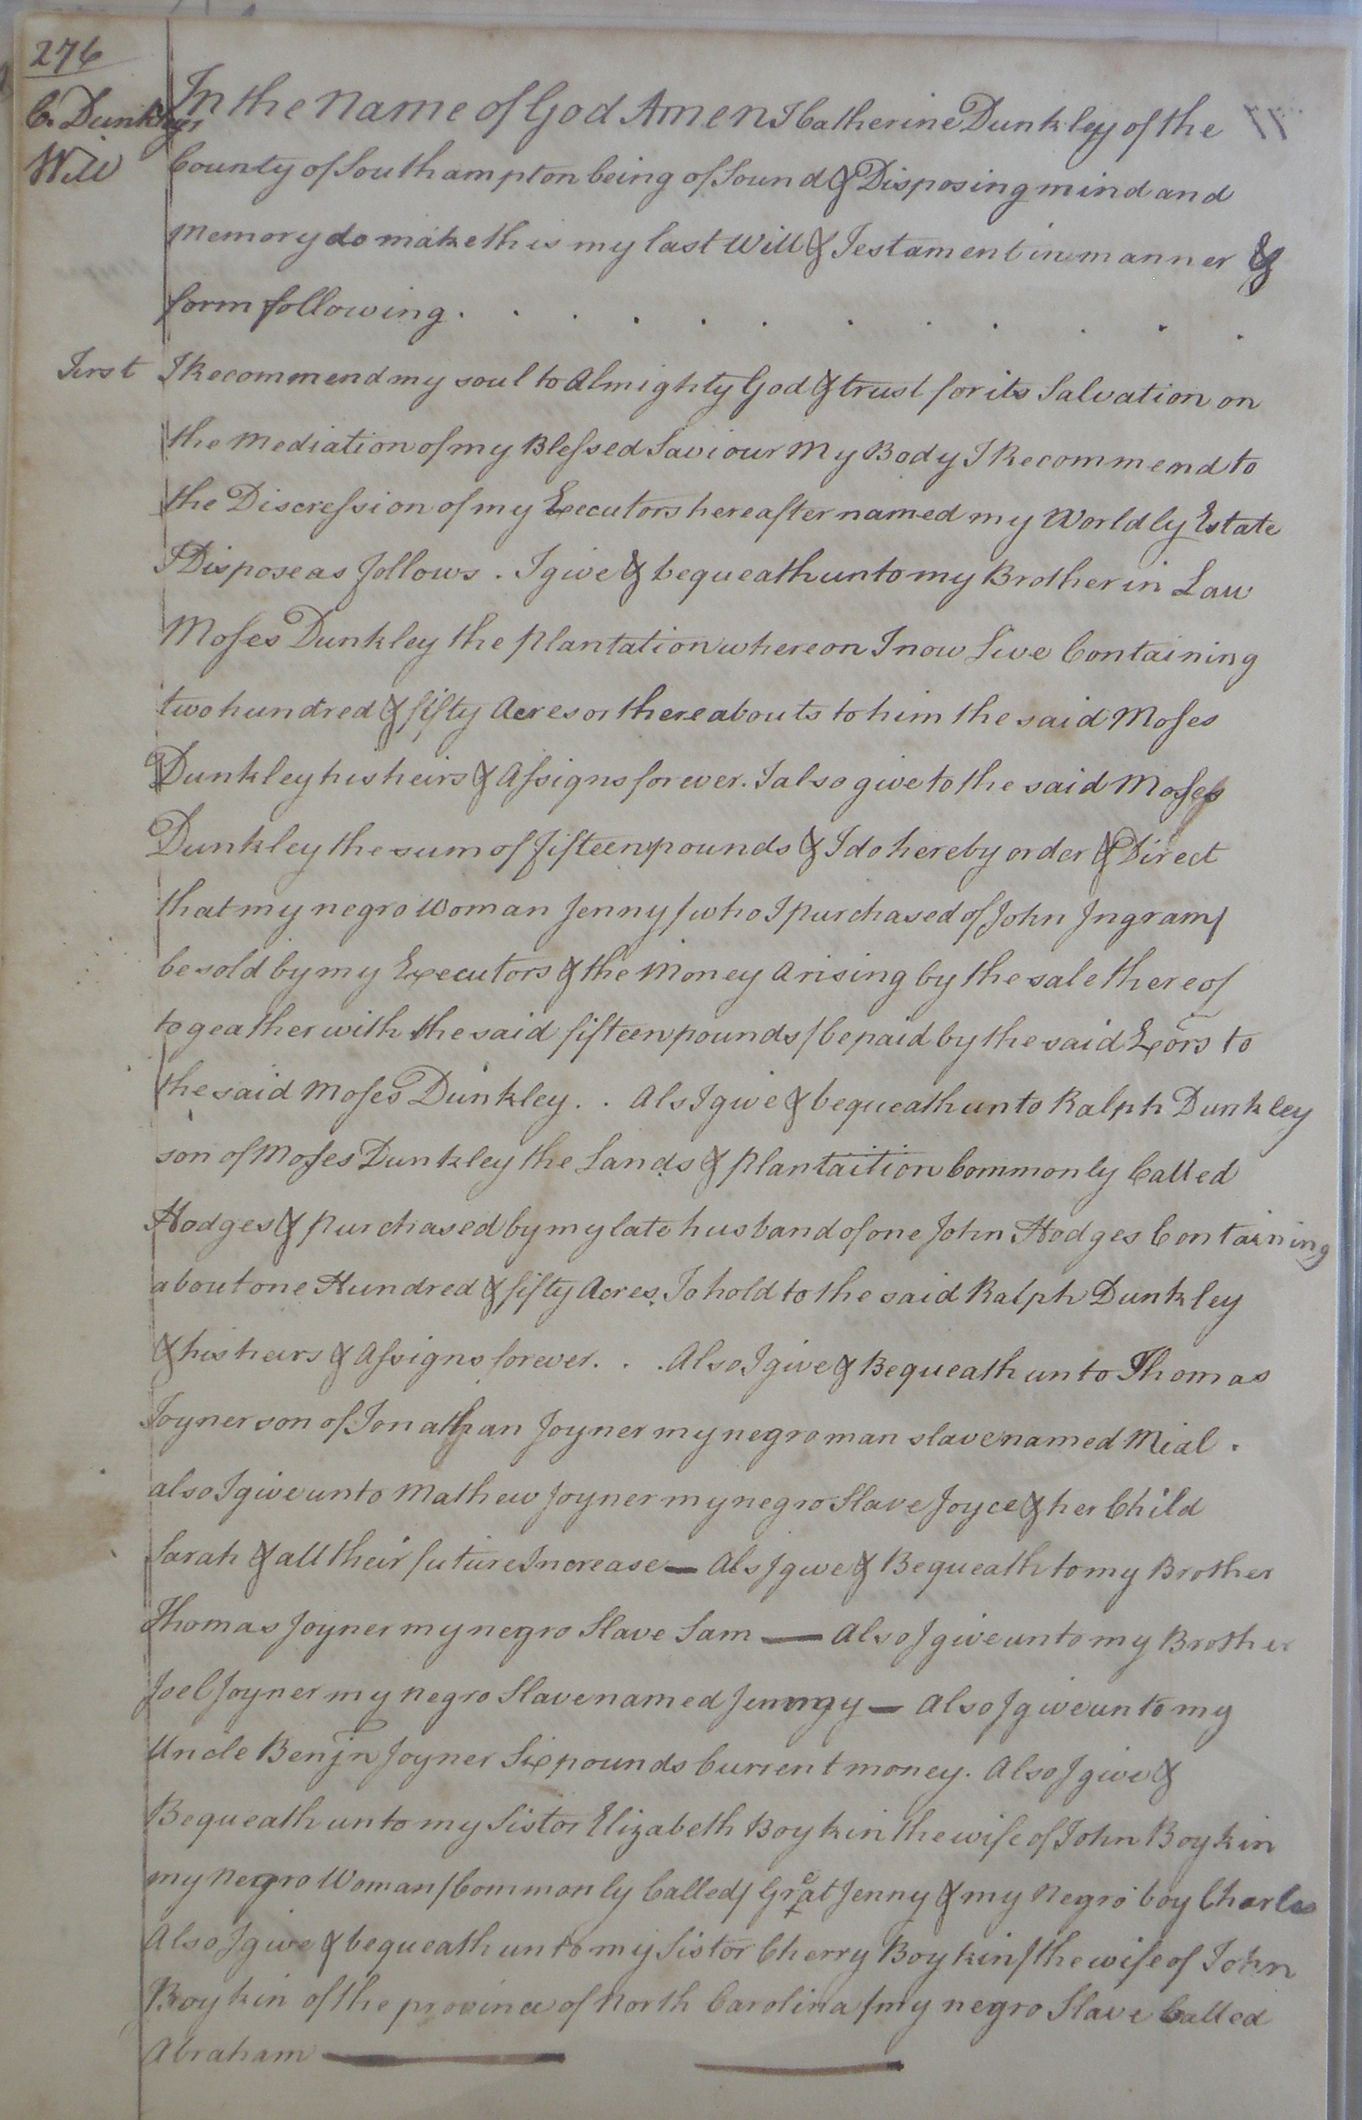 276
C. Dunkleys
Will
In the Name of God Amen I Catherine Dunkley of the
County of Southampton being of Sound & Disposing mind and
Memory do make this my last Will & Testament in manner &
form following . . . . . . . . . . . .
First I Recommend my soul to Almighty God & trust for its Salvation on
the Mediation of my Blessed Saviour My Body I Recommend to
the Discression of my Executors hereafter named my Worldly Estate
I Dispose as follows . I give & bequeath unto my Brother in Law
Moses Dunkley the Plantation whereon I now Live Containing
two hundred & fifty Acres or thereabouts to him the said Moses
Dunkley his heirs & Assigns forever. I also give to the said Moses
Dunkley the sum of fifteen pounds & I do hereby order & Direct
that my negro Woman Jenny /who I purchased of John Ingram/
be sold by my Executors & the Money Arising by the sale thereof
togeather with the said fifteen pounds / be paid by the said Exors to
the said Moses Dunkley . . Als I give & bequeath unto Ralph Dunkley
son of Moses Dunkley the Lands & Plantaition Commonly Called
Hodges & Purchased by my late husband of one John Hodges Containing
about one Hundred & fifty Acres. To hold to the said Ralph Dunkley
& his heirs & Assigns forever. . . Also I give & Bequeath unto Thomas
Joyner son of Jonathan Joyner my negro man slave named Mial .
also I give unto Mathew Joyner my negro Slave Joyce & her Child
Sarah & all their future Increase — Als I give & Bequeath to my Brother
Thomas Joyner my negro Slave Sam — Also I give unto my Brother
Joel Joyner my negro Slave named Jemmy — Also I give unto my
Uncle Benjn Joyner Six pounds Current money. Also I give &
Bequeath unto my Sistor Elizabeth Boykin the wife of John Boykin
my Negro Woman /Commonly Called/ Great Jenny & my Negro boy Charles
Also I give & bequeath unto my Sistor Cherry Boykin /the wife of John
Boykin of the province of North Carolina / my negro Slave Called
Abraham —— ——